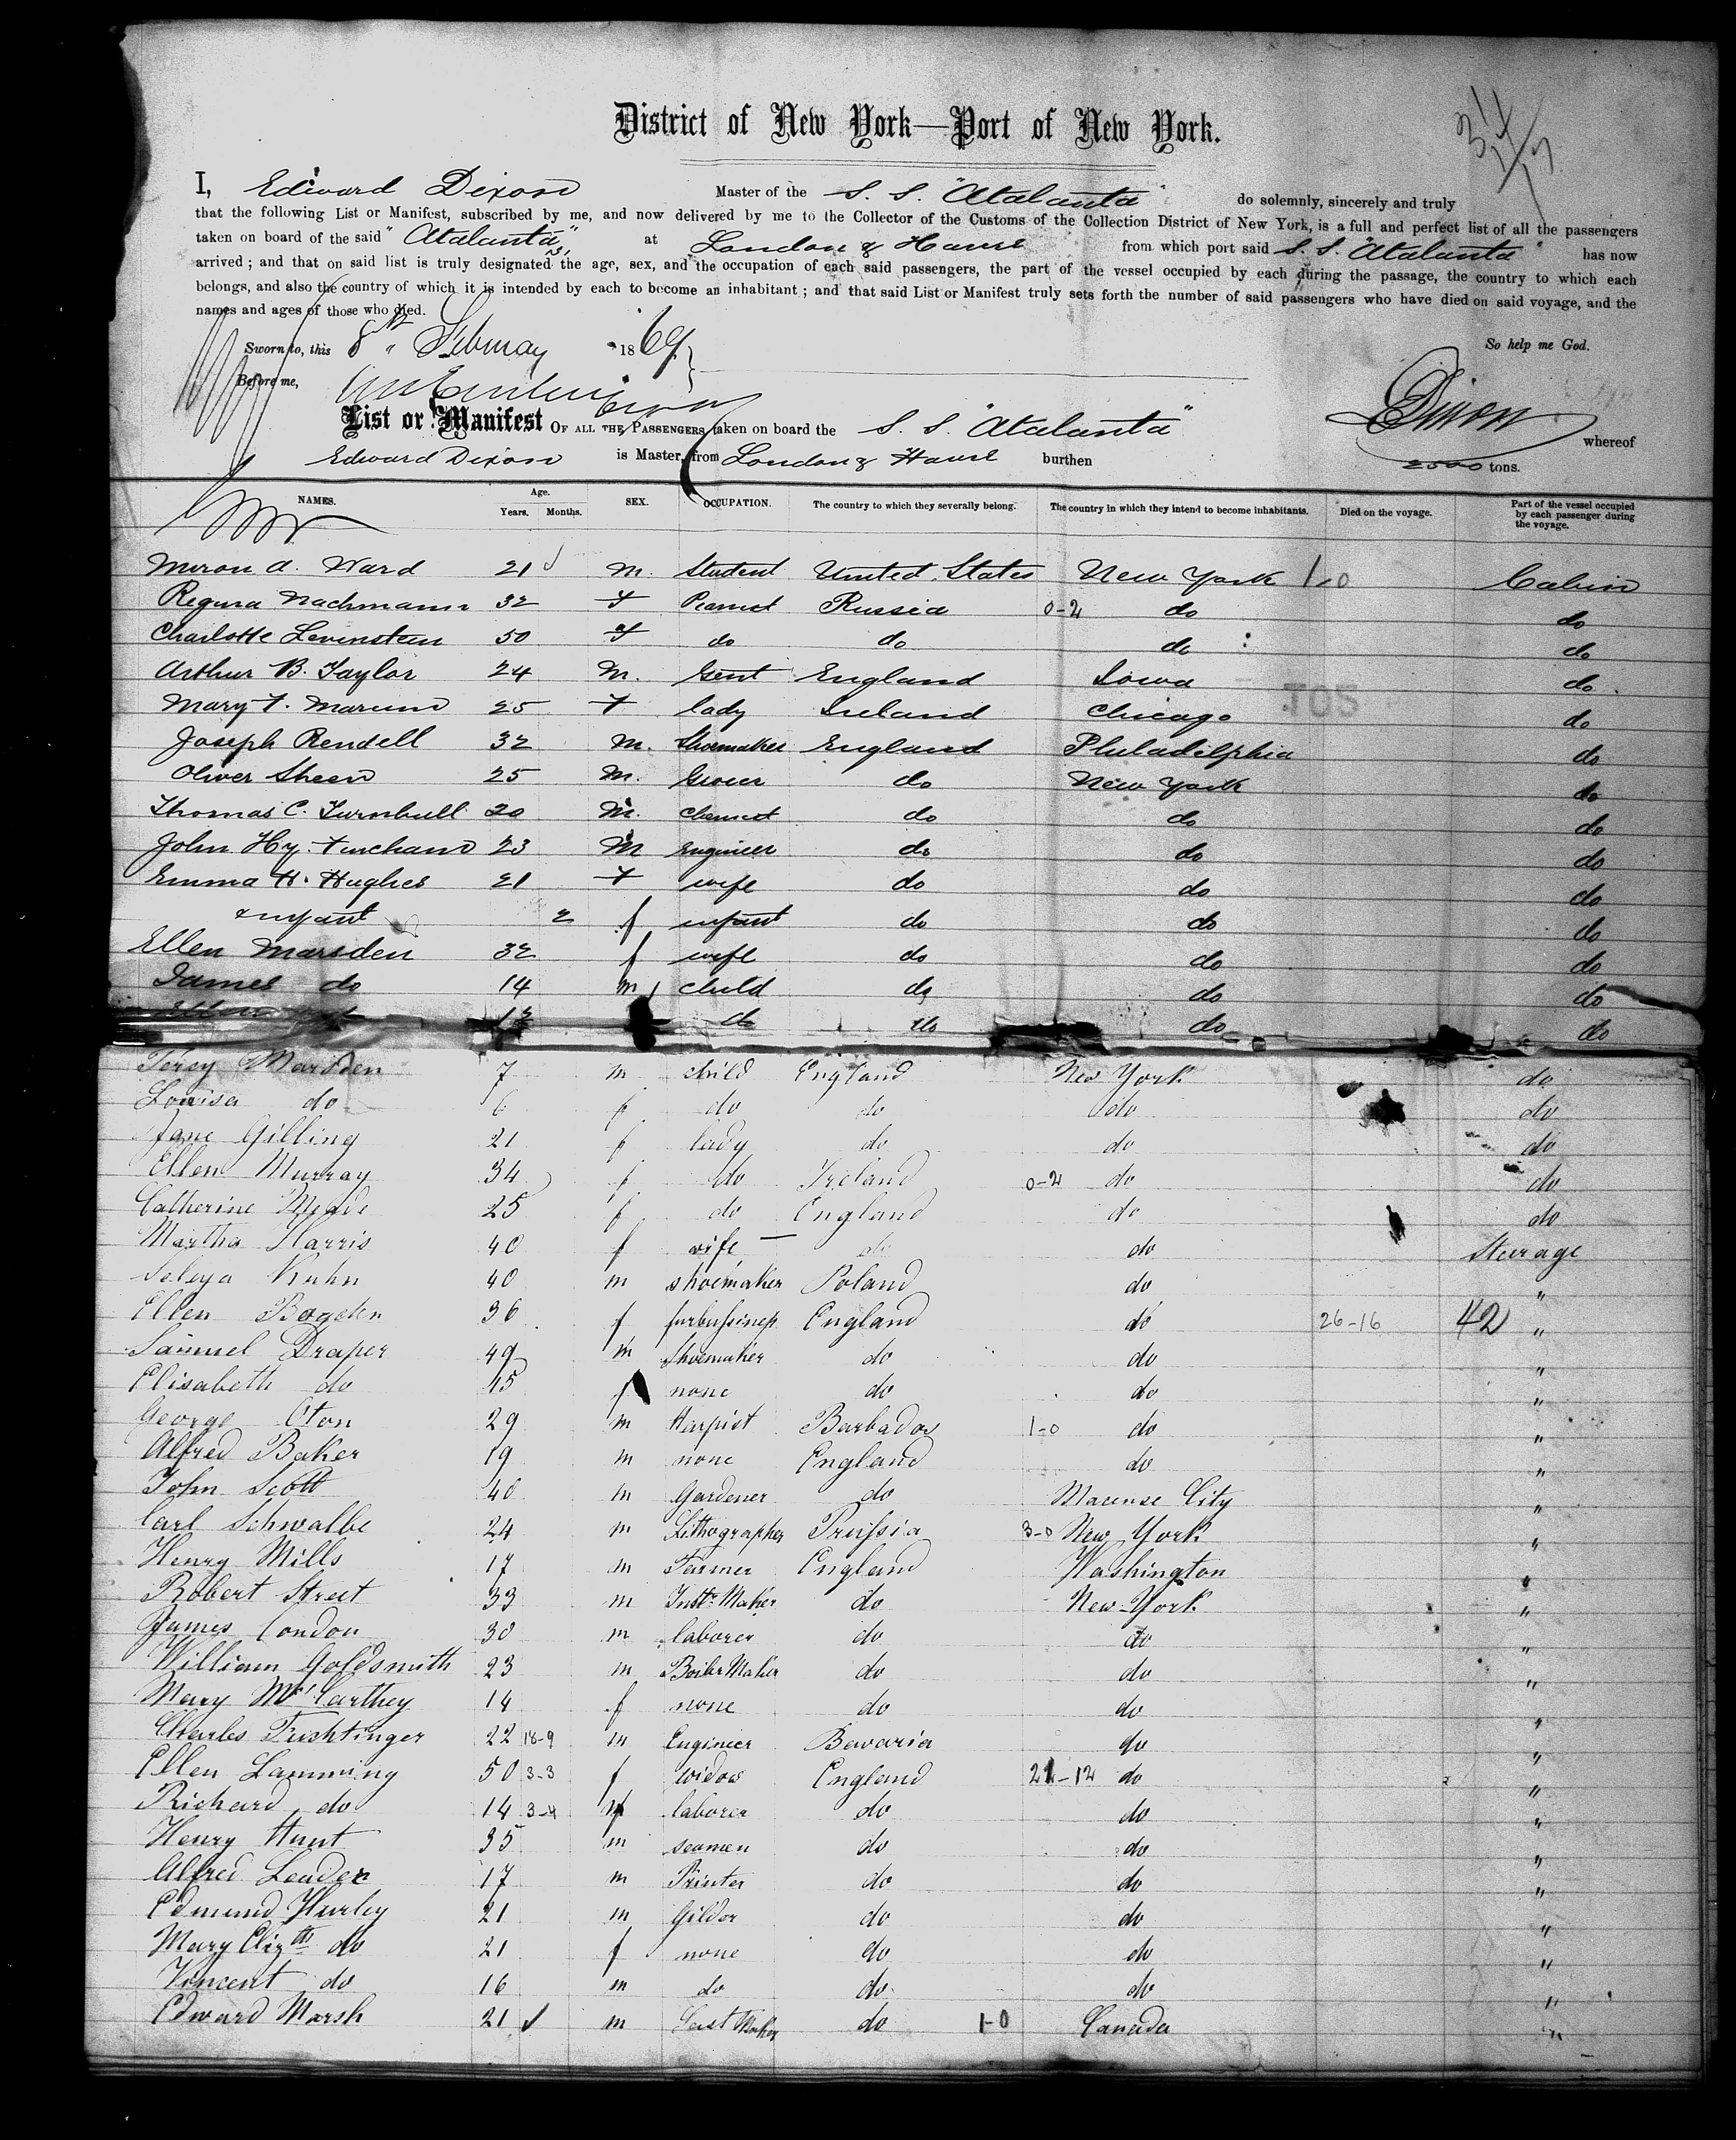 District of New York—Port of New York.
I, Edward Dixon Master of the S. S. "Atalanta" do solemnly, sincerely and truly
that the following List or Manifest, subscribed by me, and now delivered by me to the Collector of the Customs of the Collection District of New York, is a full and perfect list of all the passengers
taken on board of the said "Atalanta" at London & Havre from which port said S. S. "Atalanta" has now
arrived; and that on said list is truly designated the age, sex, and the occupation of each said passengers, the part of the vessel occupied by each during the passage, the country to which each
belongs, and also the country of which it is intended by each to become an inhabitant; and that said List or Manifest truly sets forth the number of said passengers who have died on said voyage, and the
names and ages of those who died.
Sworn to, this 8th February 1869 So help me God.
Before me, Dixon
List or Manifest OF ALL THE PASSENGERS taken on board the S. S. "Atalanta" whereof
Edward Dixon is Master, from London & Havre burthen 2500 tons.
NAMES. Age. Years. Months. SEX. OCCUPATION. The country to which they severally belong. The country in which they intend to become inhabitants. Died on the voyage. Part of the vessel occupied by each passenger during the voyage.
Miron A. Ward 21 M. Student United States New York 1-0 Cabin
Regina Nachmann 32 F Russia 0-2 do do
Charlotte Levinstein 50 F do do do do
Arthur B. Taylor 24 M. Gent England Iowa do
Mary F. 25 F lady Ireland Chicago do
Joseph Rendell 32 M. Shoemaker England Philadelphia do
Oliver Sheen 25 M. Grocer do New York do
Thomas C. Turnbull 20 M. Chemist do do do
John Hy. Fincham 23 M Engineer do do do
Emma H. Hughes 21 F wife do do do
& infant 2 f infant do do do
Ellen Marsden 32 f wife do do do
James do 14 m child do do do
12 do do do do
Percy Marsden 7 m child England New York do
Louisa do 6 f do do do do
Jane Gilling 21 f lady do do do
Ellen Murray 34 f do Ireland 0-2 do do
Catherine Meade 25 f do England do do
Martha Harris 40 f wife do do Steerage
Kuhn 40 m shoemaker Poland do "
Ellen 36 f England do 26-16 42 "
Samuel Draper 49 m Shoemaker do do "
Elisabeth do 45 f none do do "
George Oton 29 m Harpist Barbados 1-0 do "
Alfred Baker 19 m none England do "
John Scott 40 m Gardener do City "
Carl Schwalbe 24 m Lithographer Prussia 3-0 New York "
Henry Mills 17 m Farmer England Washington "
Robert Street 33 m Instr. Maker do New York "
James London 30 m laborer do do "
William Goldsmith 23 m Boiler Maker do do "
Mary McCarthey 14 f none do do "
Charles 22 18-9 m Engineer Bavaria do "
Ellen Lamming 50 3-3 f widow England 21-12 do "
Richard do 14 3-4 m laborer do do "
Henry Hunt 35 m seamen do do "
Alfred Leader 17 m Printer do do "
Edmund Hurley 21 m Gilder do do "
Mary Elizth do 21 f none do do "
Vincent do 16 m do do do "
Edward Marsh 21 m Last Maker do 1-0 Canada "